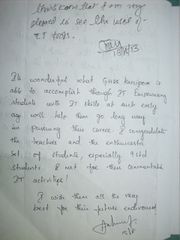 pleased to see the use of
I.T tools.
It is wonderful what Guise Kurupam is
able to accomplish through IT Empowering
students with IT skills at such early
age will help them go long way
in pursuing their career. I congratulate
the teachers and the enthusiastic
set of students, especially 9 std
students for their commendable
IT activities!
I wish them all the very
best for their future endeavours